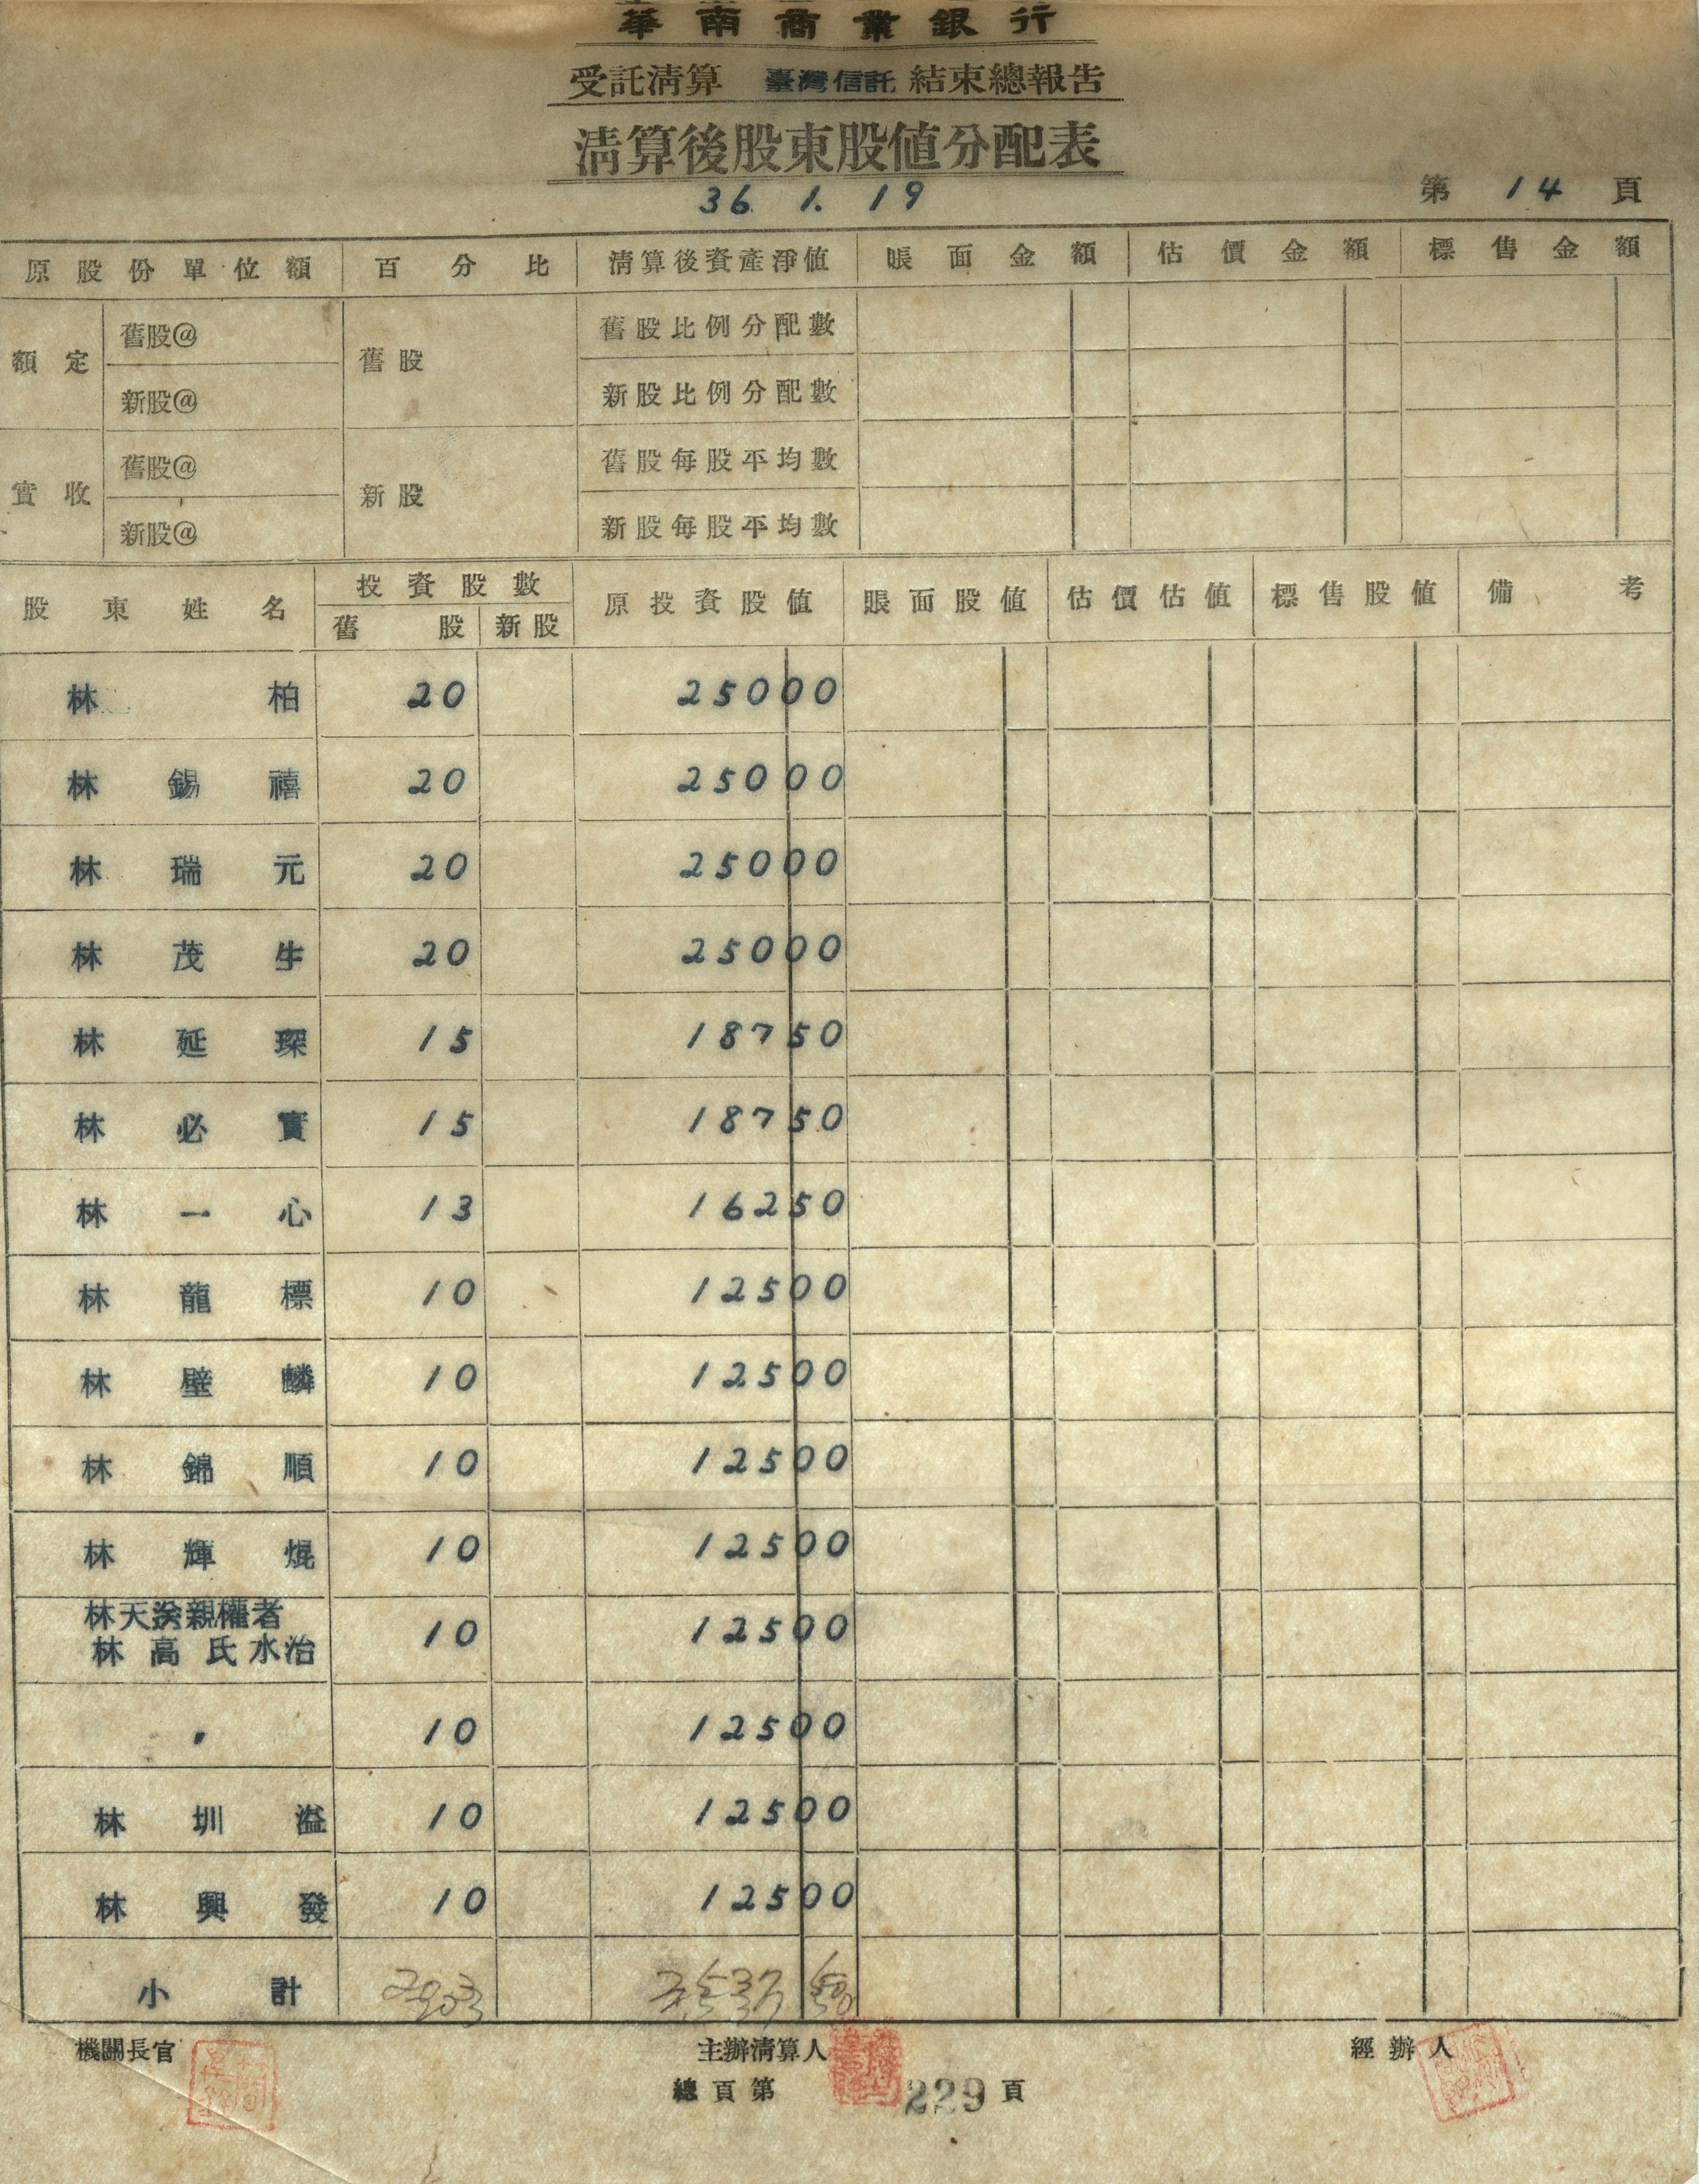 華南商業銀行
受託清算 臺灣信託 結束總報告
清算後股東股值分配表
36. 1. 19
第 14 頁
原股份單位額 百分比 清算後資產淨值 賬面金額 估價金額 標售金額
額定 舊股@ 舊股 舊股比例分配數
新股@ 新股比例分配數
實收 舊股@ 新股 舊股每股平均數
新股@ 新股每股平均數
股東姓名 投資股數 原投資股值 賬面股值 估價估值 標售股值 備考
舊股 新股
林柏 20 25000
林錫禧 20 25000
林瑞元 20 25000
林茂生 20 25000
林延琛 15 18750
林必實 15 18750
林一心 13 16250
林龍標 10 12500
林壁麟 10 12500
林錦順 10 12500
林輝焜 10 12500
林天送親權者
林高氏水治 10 12500
〃 10 12500
林圳溢 10 12500
林興發 10 12500
小計
機關長官 主辦清算人 經辦人
總頁第 229 頁